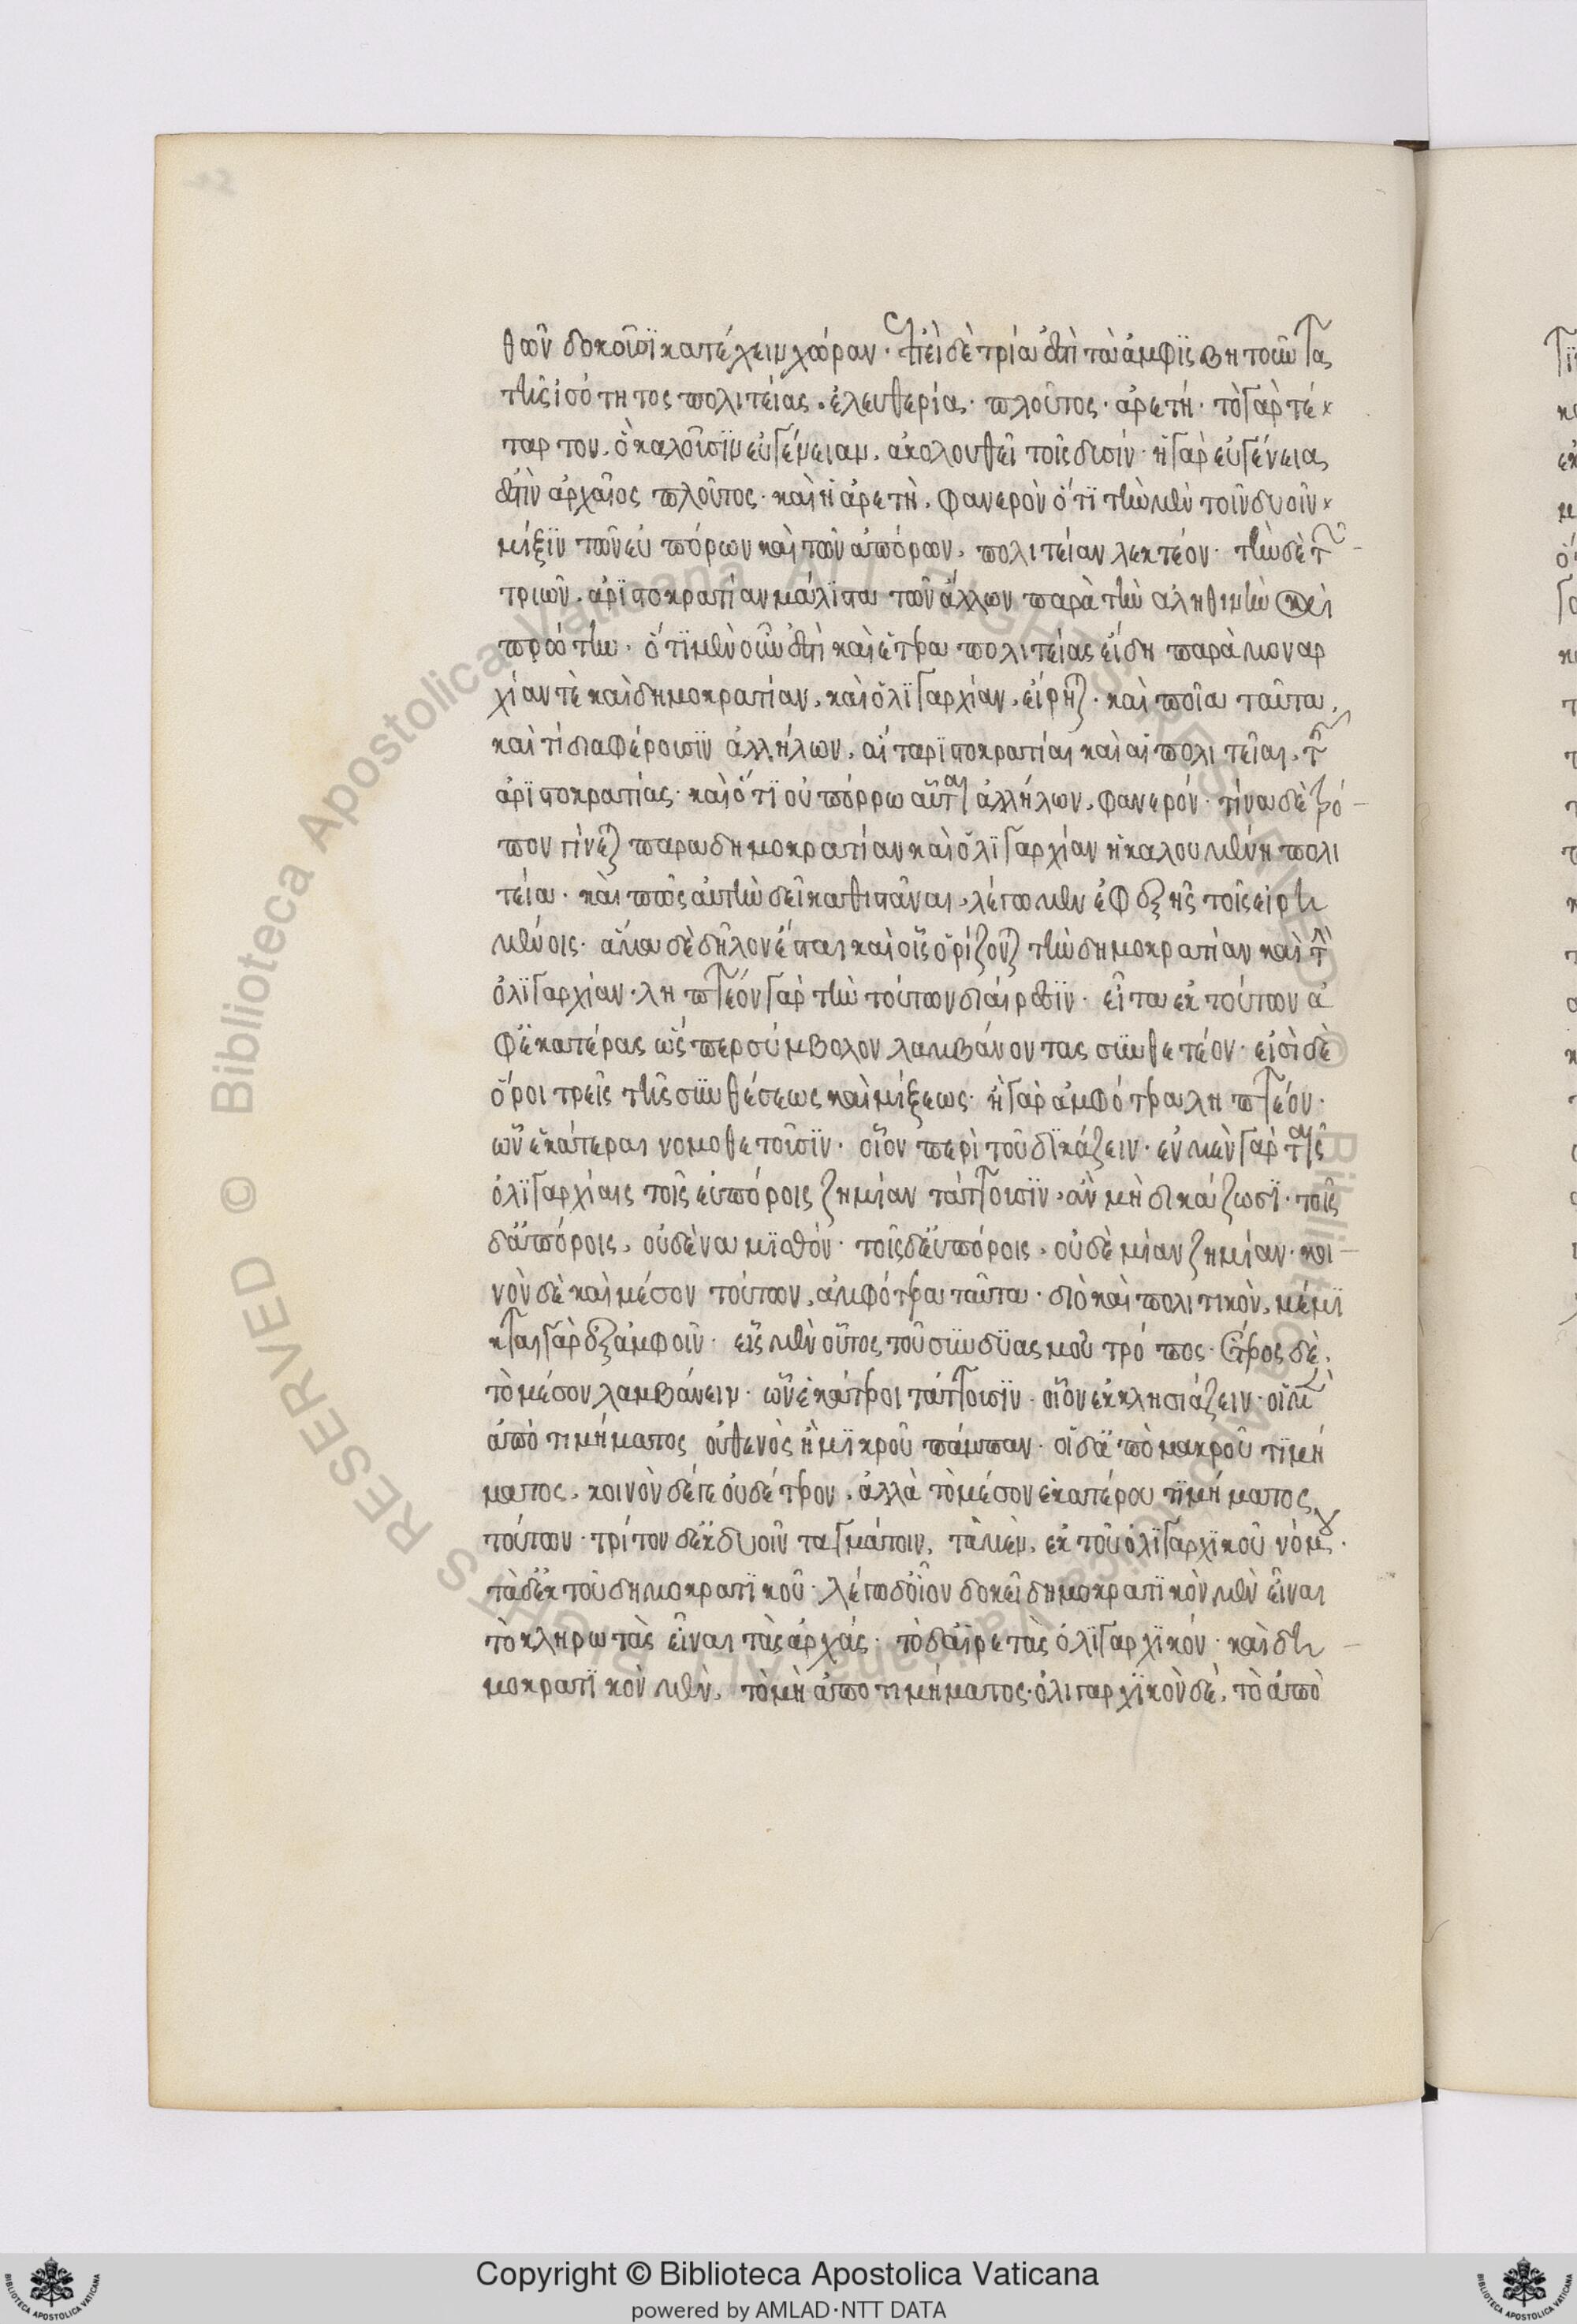 θῶν δοκοῦσϊ κατέχειν χώραν· ἐπεὶ δὲ τρία ἐστὶ τὰ ἀμφϊσβητοῦντα
τῆς ἰσότητος πολιτείας, ἐλευθερία· πλοῦτος· ἀρετή· τὸ γὰρ τέ
ταρτον, ὃ καλοῦσϊν εὐγένειαν, ἀκολουθεῖ τοῖς δυσίν· ἡ γὰρ εὐγένεια,
ἐστὶν ἀρχαῖος πλοῦτος· καὶ ἡ ἀρετὴ, φανερὸν ὅτϊ τὴν μὲν τοῖν δυοῖν
μίξϊν τῶν εὐπόρων καὶ τῶν ἀπόρων, πολιτείαν λεκτέον· τὴν δὲ τῶν
τριῶν, ἀρϊστοκρατίαν μάλϊστα τῶν ἄλλων παρὰ τὴν ἀληθινὴν καὶ
πρώτην· ὅτϊ μὲν οὖν ἐστὶ καὶ ἕτερα πολιτείας εἴδη παρὰ μοναρ
χίαν τὲ καὶ δημοκρατίαν, καὶ ὀλϊγαρχίαν, εἴρηται· καὶ ποῖα ταῦτα,
καὶ τί διαφέρουσϊν ἀλλήλων, αἵ τ' ἀρϊστοκρατίαι καὶ αἱ πολιτεῖαι, τῆς
ἀρϊστοκρατίας· καὶ ὅτϊ οὐ πόρρω αὗται ἀλλήλων, φανερόν· τίνα δὲ τρό
πον γίνεται παρα δημοκρατίαν καὶ ὀλϊγαρχίαν ἡ καλουμένη πολι
τεία· καὶ πῶς αὐτὴν δεῖ καθιστάναι, λέγωμεν ἐφεξῆς τοῖς εἰρη
μένοις· ἅμα δὲ δῆλον ἔσται καὶ οἷς ὁρίζονται τὴν δημοκρατίαν καὶ τὴν
ὀλϊγαρχίαν· ληπτέον γὰρ τὴν τούτων διαίρεσϊν· εἶτα ἐκ τούτων ἀ
φ' ἑκατέρας ὥσπερ σύμβολον λαμβάνοντας συνθετέον· εἰσὶ δὲ
ὅροι τρεῖς τῆς συνθέσεως καὶ μίξεως· ἢ γὰρ ἀμφότερα ληπτέον·
ὧν ἑκάτεραι νομοθετοῦσϊν· οἷον περὶ τοῦ δϊκάζειν· ἐν μὲν γὰρ ταῖς
ὀλϊγαρχίαις τοῖς εὐπόροις ζημίαν τάττουσϊν, ἂν μὴ δικάζωσϊ· τοῖς
δ' ἀπόροις, οὐδένα μϊσθόν· τοῖς δ' εὐπόροις, οὐδὲ μίαν ζημίαν· κοι
νὸν δὲ καὶ μέσον τούτων, ἀμφότερα ταῦτα· διὸ καὶ πολιτικὸν, μέμϊ
κται γὰρ ἐξ ἀμφοῖν· εἷς μὲν οὗτος τοῦ συνδϋασμοῦ τρόπος· ἕτερος δὲ,
τὸ μέσον λαμβάνειν· ὧν ἑκάτεροι τάττουσϊν· οἷον ἐκκλησιάζειν· οἱ μὲν
ἀπὸ τιμήματος οὐθενὸς ἢ μϊκροῦ πάμπαν· οἱ δ' ἀπὸ μακροῦ τϊμή
ματος, κοινὸν δέ γε οὐδέτερον, ἀλλὰ τὸ μέσον ἑκατέρου τϊμήματος
τούτων· τρίτον δ' ἐκ δυοῖν ταγμάτοιν, τὰ μὲν, ἐκ τοῦ ὀλϊγαρχϊκοῦ νόμου·
τὰ δ' ἐκ τοῦ δημοκρατϊκοῦ· λέγω δ' οἷον δοκεῖ δημοκρατϊκὸν μὲν εἶναι
τὸ κληρωτὰς εἶναι τὰς ἀρχάς· τὸ δ' αἱρετὰς ὀλϊγαρχϊκόν· καὶ δη
μοκρατϊκὸν μὲν, τὸ μὴ ἀπο τιμήματος· ὀλιγαρχϊκὸν δὲ, τὸ ἀπὸ
Copyright © Biblioteca Apostolica Vaticana
powered by AMLAD·NTT DATA